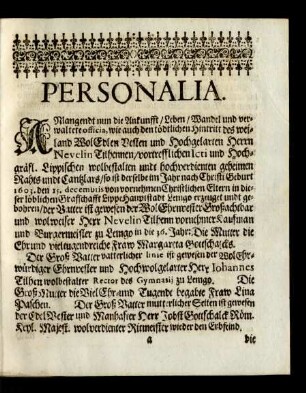 PERSONALIA.
ANlangendt nun die Ankunfft/Leben/Wandel und ver-
waltete officia, wie auch den tödtlichen Hintritt des wei-
land WolEdlen Vesten und Hochgelarten Herrn
Nevelin Tilhennen/vortrefflichen Icti und Hoch-
gräfl. Lippischen wolbestalten umb hochverdienten geheimen
Rahts und Cantzlars/so ist derselbe im Jahr nach Christi Geburt
1603. den 25. decembris von vornehmen Christlichen Eltern in die-
ser löblichen Graffschafft Lippe Hauptstadt Lemgo erzuget und ge-
bohren/der Vatter ist gewesen der Wol Ehrnvester Großachtbar
und wolweiser Herr Nevelin Tilhen vornehmer Kauffman
und Burgermeister zu Lemgo in die 36. Jahr: Die Mutter die
Ehr und vieltugendreiche Fraw Margarita Gottschalcks.
Der Groß Vatter vatterlicher linie ist gewesen der Wol Ehr-
würdiger Ehrnvester und Hochwolgelarter Herr Iohannes
Tilhen wolbestalter Rector des Gymnasij zu Lemgo. Die
Groß Mutter die Viel Ehr und Tugendt begabte Fraw Lina
Paschen. Der Groß Vatter mutterlicher Seiten ist gewesen
der Edel Vester und Manhaffter Herr Jobst Gottschalck Röm.
Keyl. Majest. wolverdienter Ritmeister wieder den Erbfeind,
a die